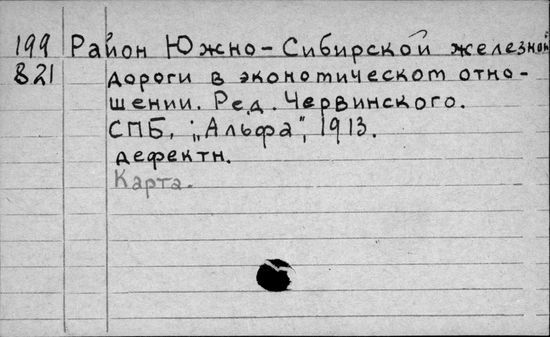 199 Район Южно-Сибирской железной
821 дороги в экономическом отно-
шении. Ред. Червинского.
СПБ, „Альфа", 1913.
дефектн.
Карта.